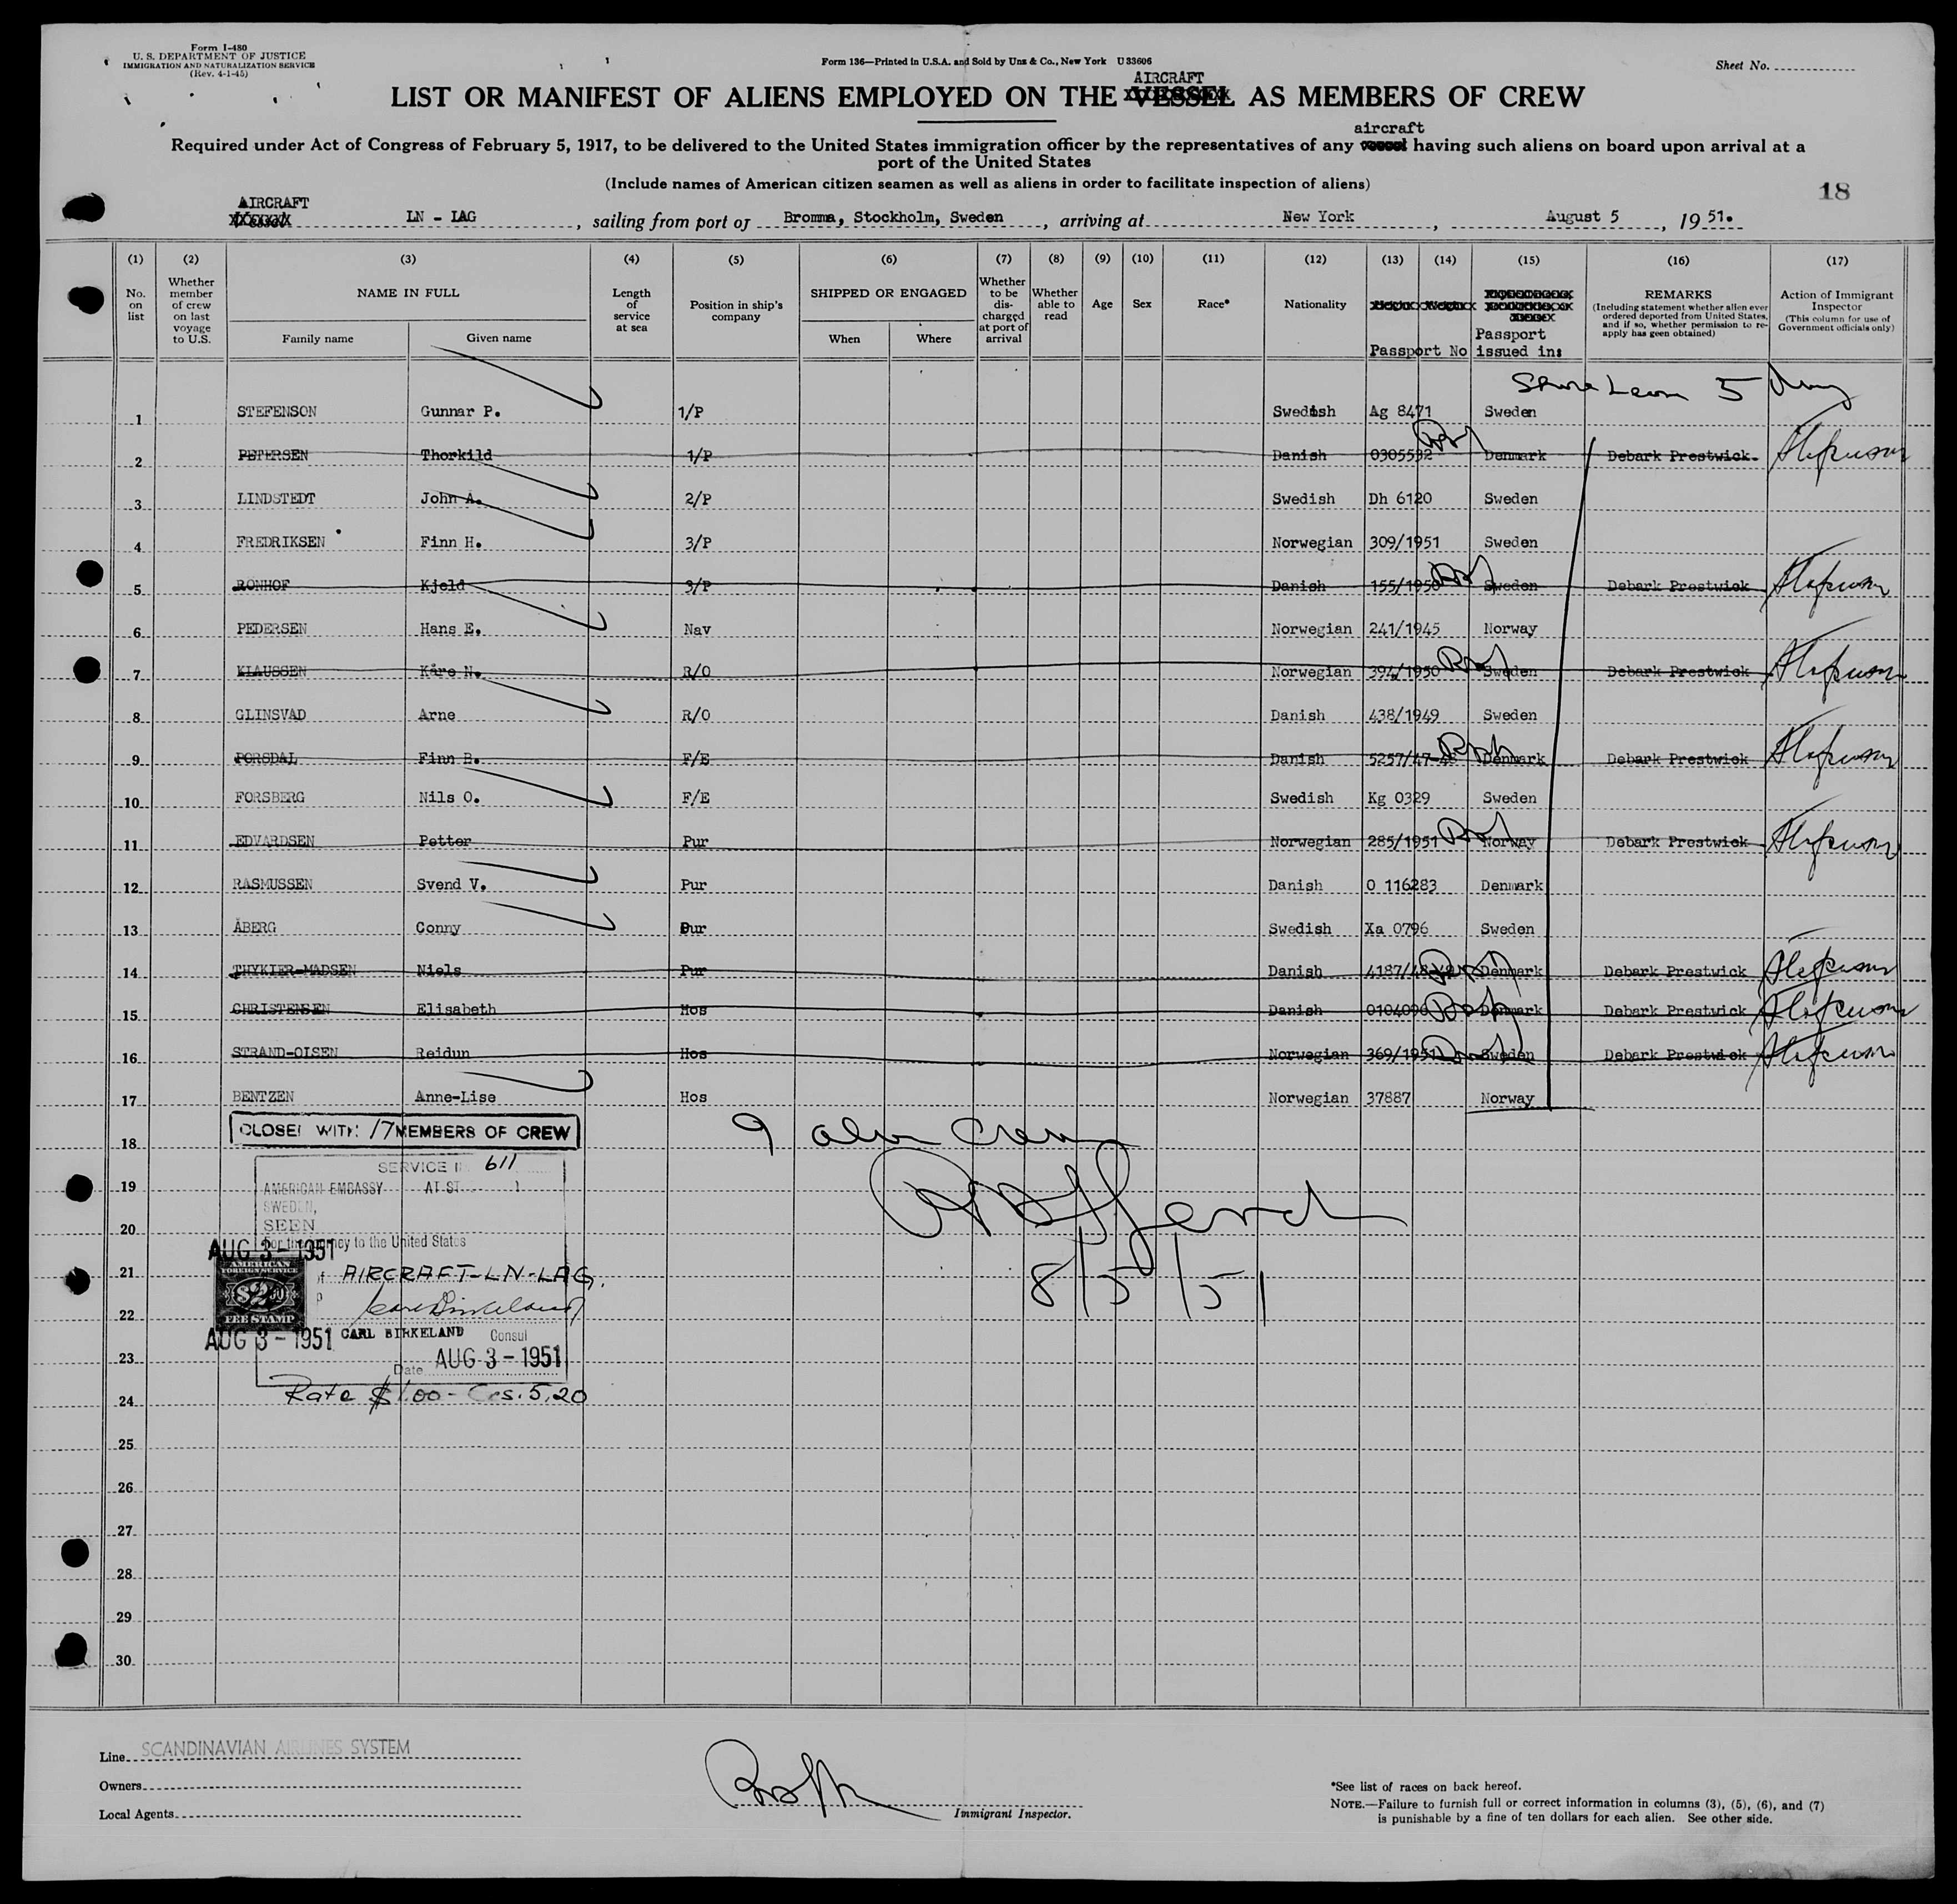 Form I-480
U. S. DEPARTMENT OF JUSTICE
IMMIGRATION AND NATURALIZATION SERVICE
(Rev. 4-1-45)
Form 136—Printed in U.S.A. and Sold by Unz & Co., New York U 33606
Sheet No.
AIRCRAFT
LIST OR MANIFEST OF ALIENS EMPLOYED ON THE VESSEL AS MEMBERS OF CREW
aircraft
Required under Act of Congress of February 5, 1917, to be delivered to the United States immigration officer by the representatives of any vessel having such aliens on board upon arrival at a
port of the United States
(Include names of American citizen seamen as well as aliens in order to facilitate inspection of aliens)
18
AIRCRAFT
Vessel LN - LAG, sailing from port of Bromma, Stockholm, Sweden, arriving at New York, August 5, 1951.
(1) (2) (3) (4) (5) (6) (7) (8) (9) (10) (11) (12) (13) (14) (15) (16) (17)
No. on list
Whether member of crew on last voyage to U.S.
NAME IN FULL
Family name
Given name
Length of service at sea
Position in ship's company
SHIPPED OR ENGAGED
When
Where
Whether to be discharged at port of arrival
Whether able to read
Age
Sex
Race*
Nationality
Passport No
Passport issued in:
REMARKS
(Including statement whether alien ever ordered deported from United States, and if so, whether permission to re-apply has geen obtained)
Action of Immigrant Inspector
(This column for use of Government officials only)
5
1 STEFENSON Gunnar P. 1/P Swedish Ag 8471 Sweden
2 PETERSEN Thorkild 1/P Danish 0305532 Denmark Debark Prestwick
3 LINDSTEDT John A. 2/P Swedish Dh 6120 Sweden
4 FREDRIKSEN Finn H. 3/P Norwegian 309/1951 Sweden
5 RONHOF Kjeld 3/P Danish 155/1950 Sweden Debark Prestwick
6 PEDERSEN Hans E. Nav Norwegian 241/1945 Norway
7 KLAUSSEN Kåre N. R/O Norwegian 394/1950 Sweden Debark Prestwick
8 GLINSVAD Arne R/O Danish 438/1949 Sweden
9 PORSDAL Finn B. F/E Danish 5257/47-48 Denmark Debark Prestwick
10 FORSBERG Nils O. F/E Swedish Kg 0329 Sweden
11 EDVARDSEN Petter Pur Norwegian 285/1951 Norway Debark Prestwick
12 RASMUSSEN Svend V. Pur Danish 0 116283 Denmark
13 ÅBERG Conny Pur Swedish Xa 0796 Sweden
14 THYKIER-MADSEN Niels Pur Danish 4187/48 Denmark Debark Prestwick
15 CHRISTENSEN Elisabeth Hos Danish 0104090 Denmark Debark Prestwick
16 STRAND-OLSEN Reidun Hos Norwegian 369/1951 Sweden Debark Prestwick
17 BENTZEN Anne-Lise Hos Norwegian 37887 Norway
18 CLOSED WITH 17 MEMBERS OF CREW
9 alien crew
SERVICE 611
19 AMERICAN EMBASSY AT
SWEDEN,
20 SEEN
For the journey to the United States
AUG 3 - 1951
21 AMERICAN FOREIGN SERVICE
$2.00
FEE STAMP
of AIRCRAFT-LN-LAG.
8/5/51
22
AUG 3 - 1951 CARL BIRKELAND Consul
23 Date AUG 3 - 1951
24 Rate $1.00 - Crs. 5.20
25
26
27
28
29
30
Line SCANDINAVIAN AIRLINES SYSTEM
Owners
Local Agents
Immigrant Inspector.
*See list of races on back hereof.
NOTE.—Failure to furnish full or correct information in columns (3), (5), (6), and (7)
is punishable by a fine of ten dollars for each alien. See other side.